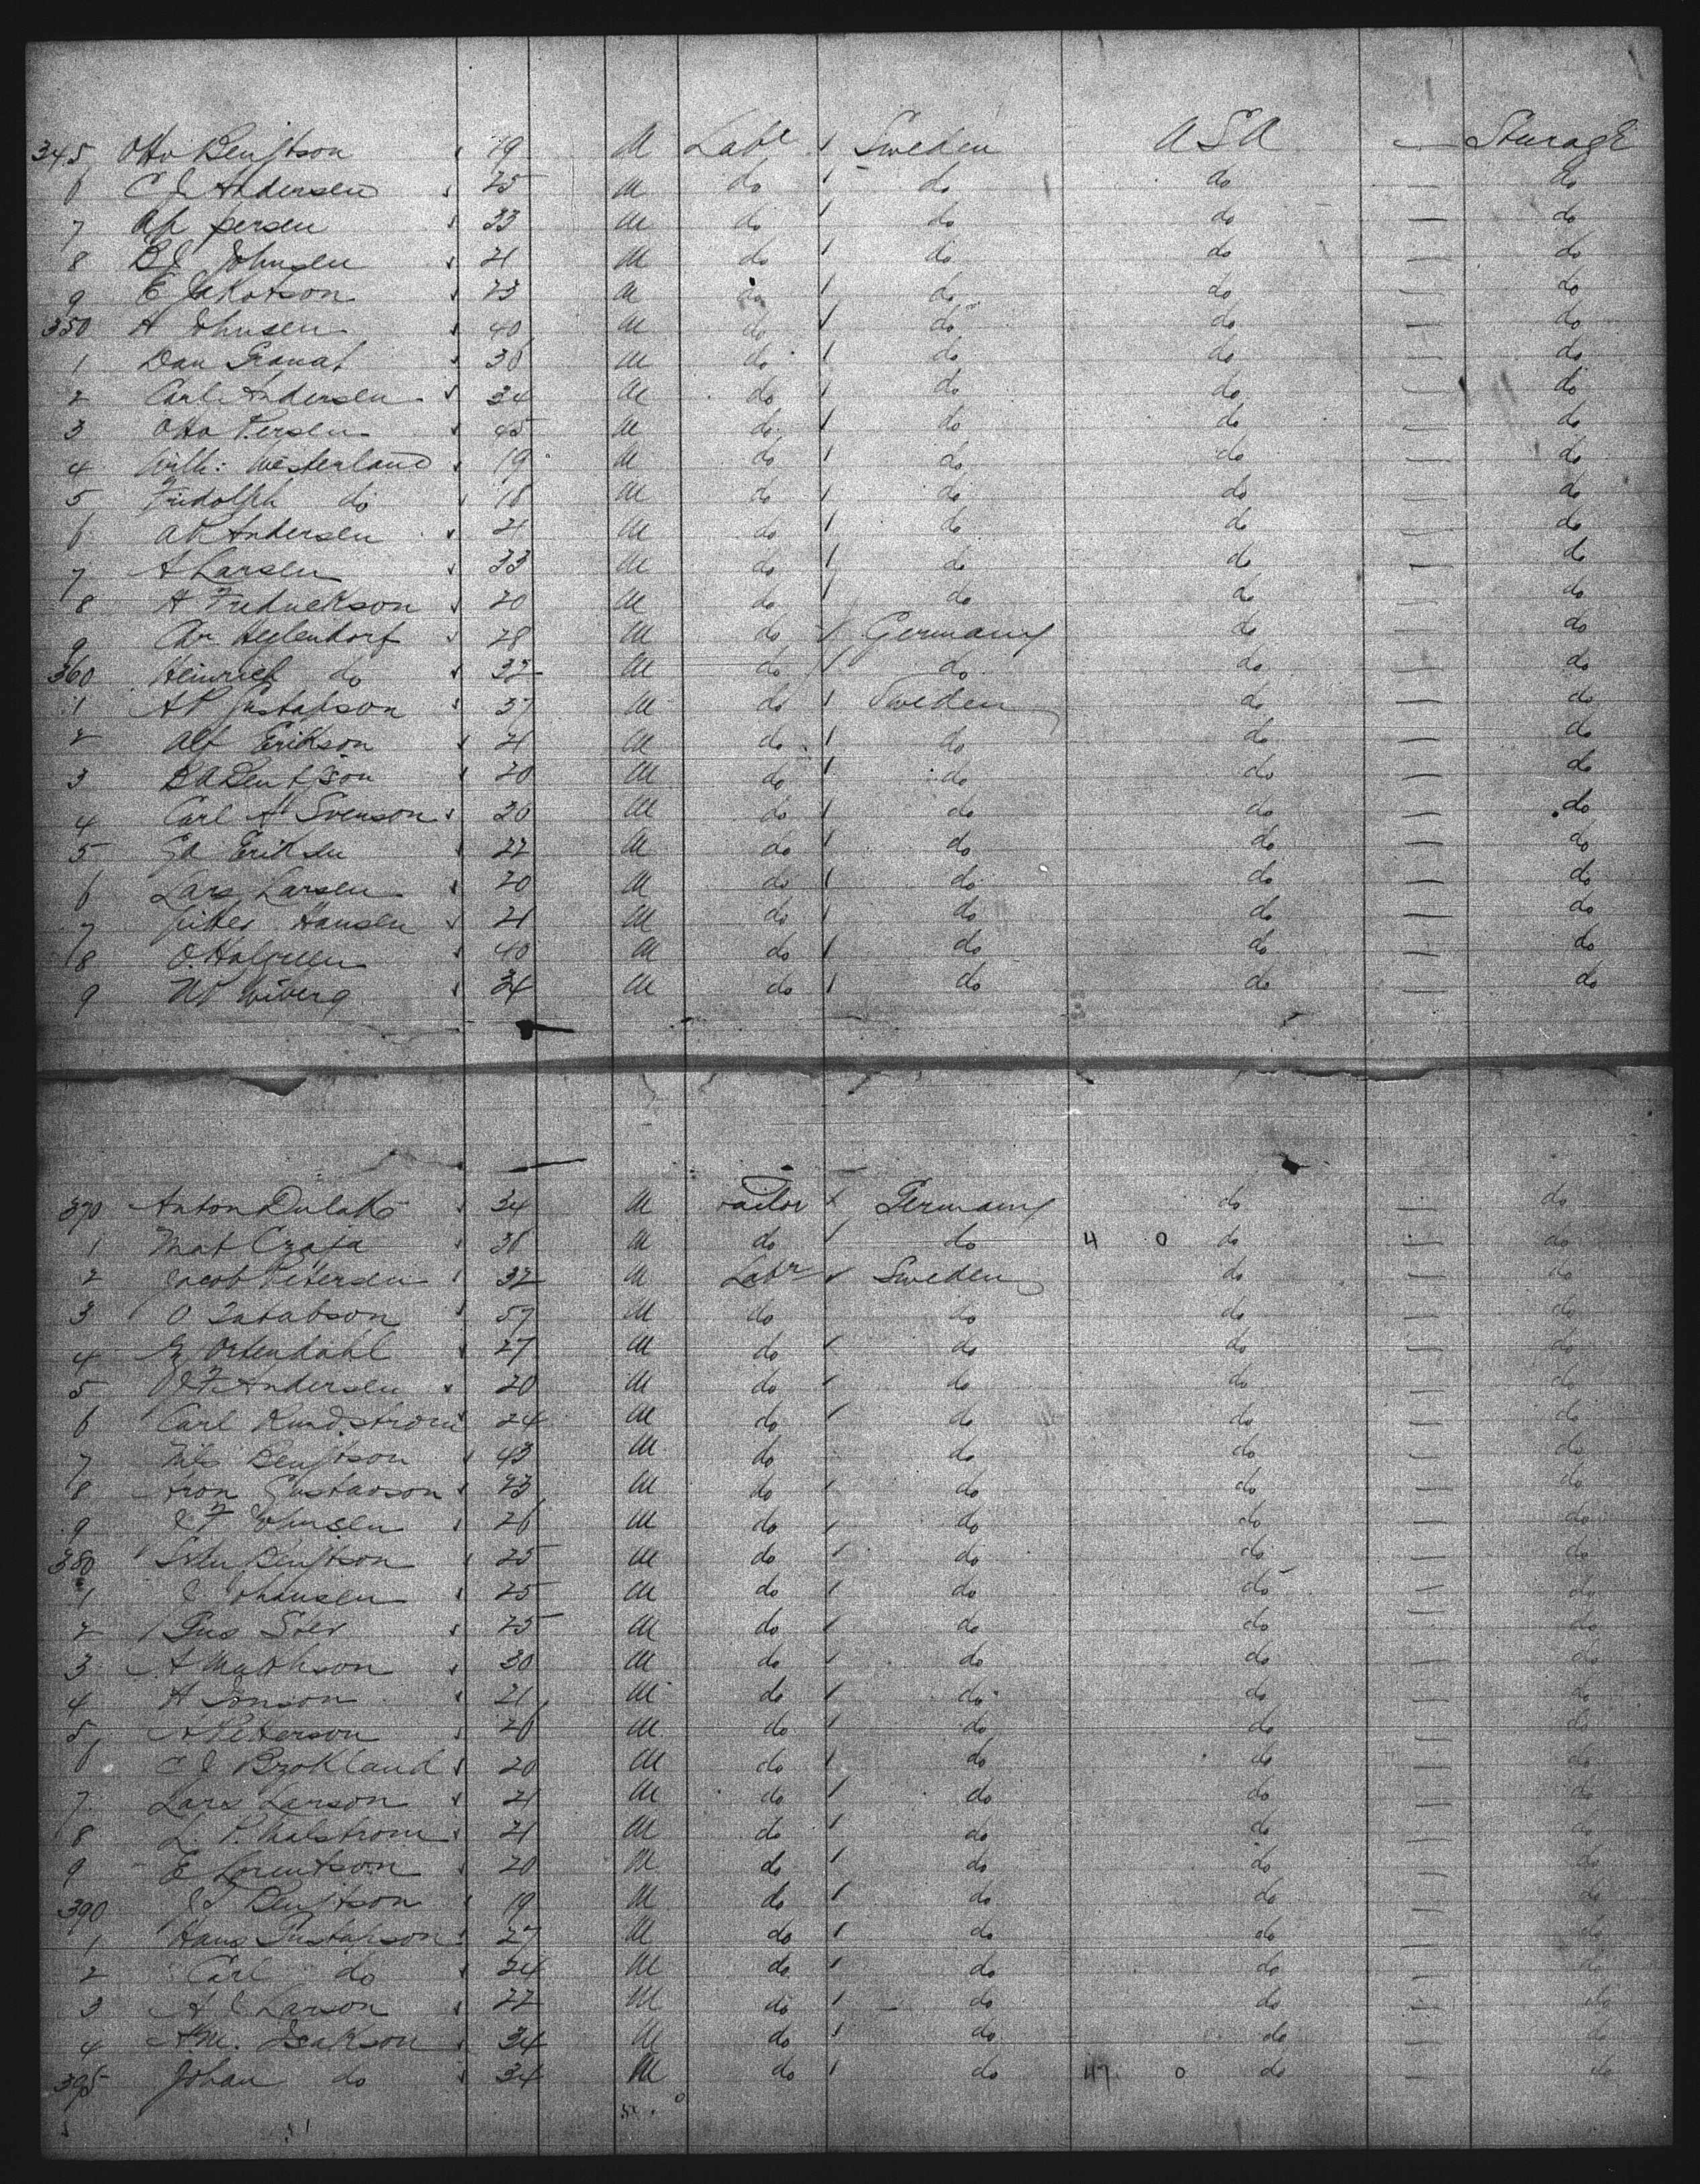 345 Otto Bengtson 19 M Labr Sweden USA — Sturage
6 C J Andersen 25 M do do do — do
7 persen 33 M do do do — do
8 B J Johnsen 21 M do do do — do
9 E Jakobson 23 M do do do — do
350 A Johnsen 40 M do do do — do
1 Dan Granat 38 M do do do — do
2 Carl Andersen 34 M do do do — do
3 Otto Persen 45 M do do do — do
4 Will: Westerland 19 M do do do — do
5 Fridolph do 18 M do do do — do
6 A P Andersen 21 M do do do — do
7 A Larsen 33 M do do do — do
8 A Fredrickson 20 M do do do — do
9 Heylendorf 28 M do Germany do — do
360 Heinrich do 32 M do do do — do
1 A P Gustafson 37 M do Sweden do — do
2 Alf Erikson 21 M do do do — do
3 B A Bengtson 20 M do do do — do
4 Carl A Svenson 20 M do do do — do
5 Ed Eriksen 22 M do do do — do
6 Lars Larsen 20 M do do do — do
7 Hansen 21 M do do do — do
8 O. Halgreen 40 M do do do — do
9 Wiberg 34 M do do do — do
370 Anton Dulak 34 M Tailor Germany do — do
1 Mat Czaja 38 M do do 4 0 do — do
2 Jacob Petersen 32 M Labr Sweden do — do
3 O 57 M do do do — do
4 Ortendahl 27 M do do do — do
5 J F Andersen 20 M do do do — do
6 Carl Rundstrom 24 M do do do — do
7 Nils Bengtson 43 M do do do — do
8 Aron Gustavson 23 M do do do — do
9 C F Johnsen 26 M do do do — do
380 Sven Bengtson 25 M do do do — do
1 C Johansen 25 M do do do — do
2 Gus 25 M do do do — do
3 A Mathson 30 M do do do — do
4 A Jonson 21 M do do do — do
5 A Petterson 26 M do do do — do
6 C J Brokland 20 M do do do — do
7 Lars Larson 21 M do do do — do
8 L. P. Malstrom 21 M do do do — do
9 E Lorentson 20 M do do do — do
390 Bengtson 19 M do do do — do
1 Hans Gustafson 27 M do do do — do
2 Carl do 24 M do do do — do
3 A C Larson 22 M do do do — do
4 A. M. Isakson 34 M do do do — do
395 Johan do 34 M do do 47 0 do — do